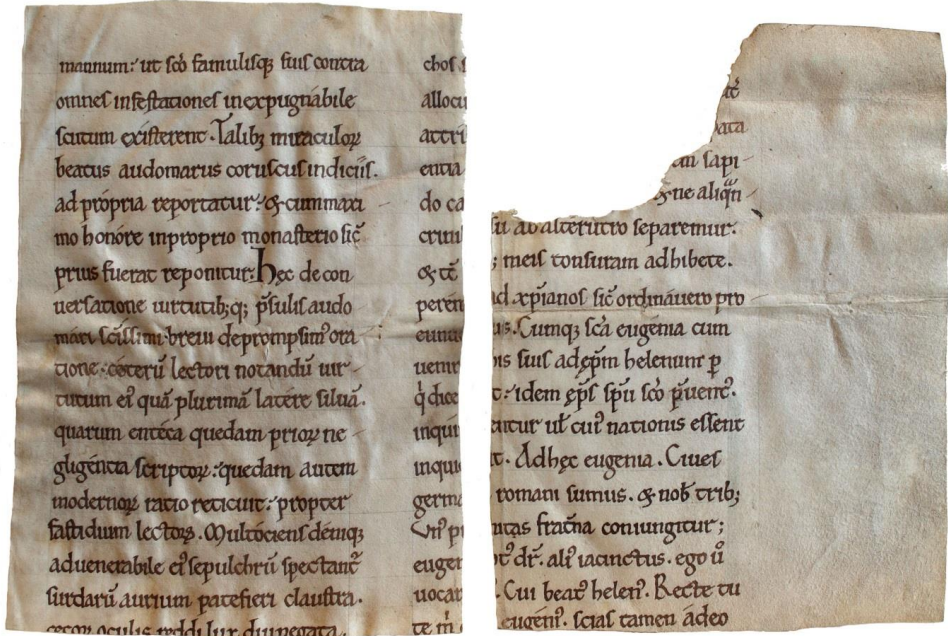 mannum: ut sc̄o famulisq; suis contra
omnes infestationes inexpugnabile
scutum existerent. Talib; miraculoꝝ
beatus audomarus coruscus indiciis.
ad propria reportatur. & cum maxi
mo honore in proprio monasterio sic̄
prius fuerat reponitur. Hęc de con
uersatione uirtutib;q; p̄sulis audo
mari sc̄issimi breui deprompsimꝰ ora
tione. ceterū lectori notandū uir
tutum eiꝰ quā plurimā latere siluā.
quarum enteca quedam prioꝝ ne
gligentia scriptoꝝ: quedam autem
modernoꝝ ratio reticuit: propter
fastidium lectoꝝ. Multociens deniq;
ad uenerabile eiꝰ sepulchrū spectant̄
surdarū aurium patefieri claustra.
cecor oculis reddi lux diu negata
chos
allocu
attri
entia
do ca
crimi
& tc̄
perem
eunu
uenir
q̇ dice
inqui
inquie
germa
Vnꝰ p
eugen
uocar
te m̄
sapi-
ne aliqn̄
su ab alterutro separemur.
; meis tonsuram adhibete.
ad xp̄ianos sic̄ ordinauero pro
us. Cumq; sc̄a eugenia cum
is suis ad ęp̄m helenum ꝑ
t: idem ęp̄s sp̄u sc̄o p̄uenit.
entur ul̄ cuiꝰ nationis essent
t. Ad hęc eugenia. Ciues
romani sumus. & nob̄ trib;
nitas frat̄na coniungitur;
dr̄. aliꝰ iacinctus. ego ū
. Cui beatꝰ helenꝰ. Recte tu
eugeniꝰ. scias tamen adeo